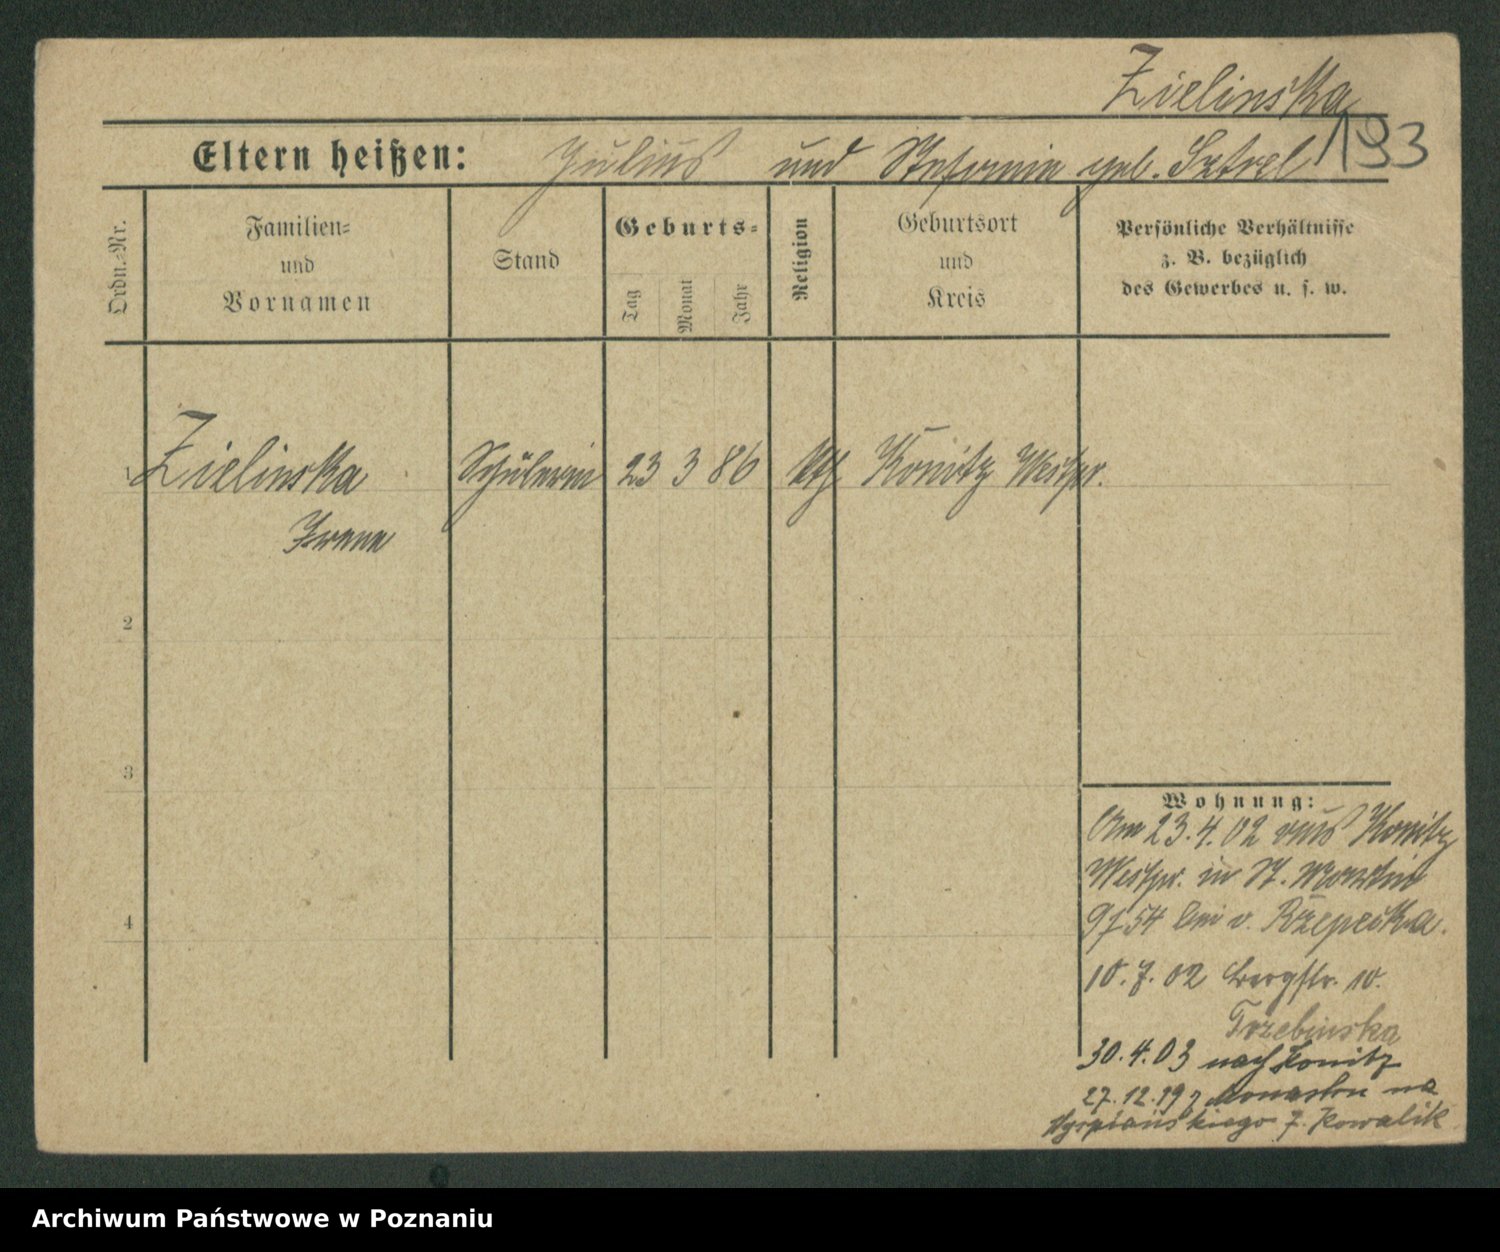 Zielinska
193
Eltern heißen: Julius und Stefanie geb.
Ordn.=Nr.
Familien=
und
Vornamen
Stand
Geburts=
Tag
Monat
Jahr
Religion
Geburtsort
und
Kreis
Persönliche Verhältnisse
z. B. bezüglich
des Gewerbes u. s. w.
1 Zielinska Schülerin 23 3 86 kth Konitz Westpr.
Irene
2
3
4
Wohnung:
Am 23.4.02 aus Konitz
Westpr. in St. Martin
54 bei v. Rzepecka.
10.7.02 Bergstr. 10.
Trzebinska
30.4.03 nach Konitz
27.12.19 z na
Wyspiańskiego 7. Kowalik
Archiwum Państwowe w Poznaniu